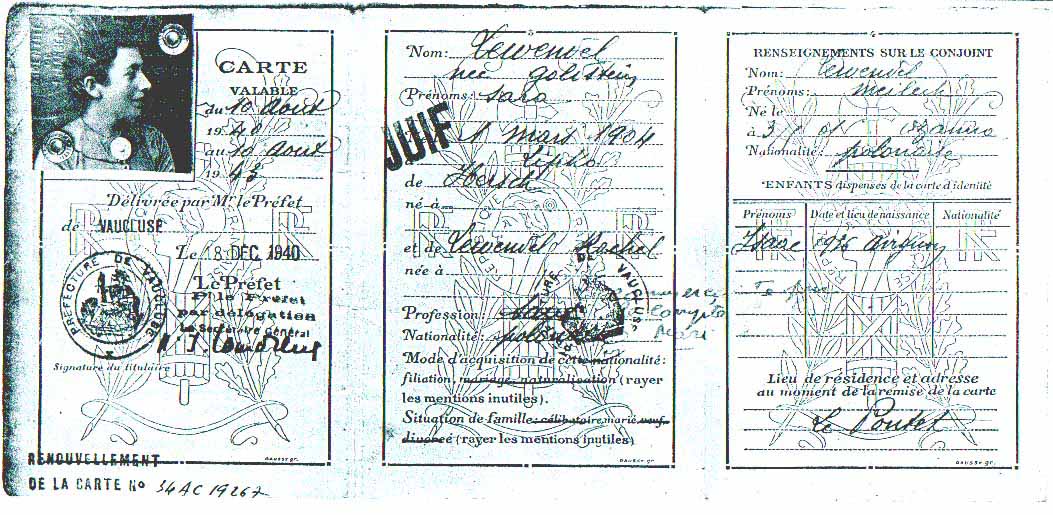 CARTE
VALABLE
du 10 Août
1940
au 10 Août
1943
Délivrée par Mr le Préfet
de VAUCLUSE
Le 18 DEC. 1940
PREFECTURE DE VAUCLUSE
Le Préfet
P. le Préfet
par délégation
Le Secrétaire Général
Signature du titulaire
GAUSSY gr.
RENOUVELLEMENT
DE LA CARTE No 34 AC 19267
3
Nom: Lewendel
née Goldstein
Prénoms: Sara
JUIF
1 mars 1904
de Hersch
né à
et de Lewendel Rachel
née à
Profession:
Nationalité: polonaise
Mode d'acquisition de cette nationalité:
filiation, mariage, naturalisation (rayer
les mentions inutiles).
Situation de famille: célibataire, marié, veuf,
divorcé (rayer les mentions inutiles)
GAUSSY gr.
4
RENSEIGNEMENTS SUR LE CONJOINT
Nom: Lewendel
Prénoms: Meilech
Né le
à
Nationalité: polonaise
ENFANTS dispensés de la carte d'identité
Prénoms Date et lieu de naissance Nationalité
Isaac 1936 Avignon
Lieu de résidence et adresse
au moment de la remise de la carte
Le Pontet
GAUSSY gr.